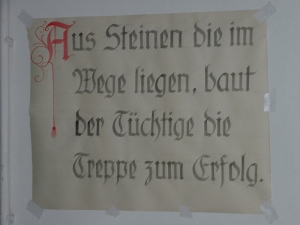 Aus Steinen die im
Wege liegen, baut
der Tüchtige die
Treppe zum Erfolg.